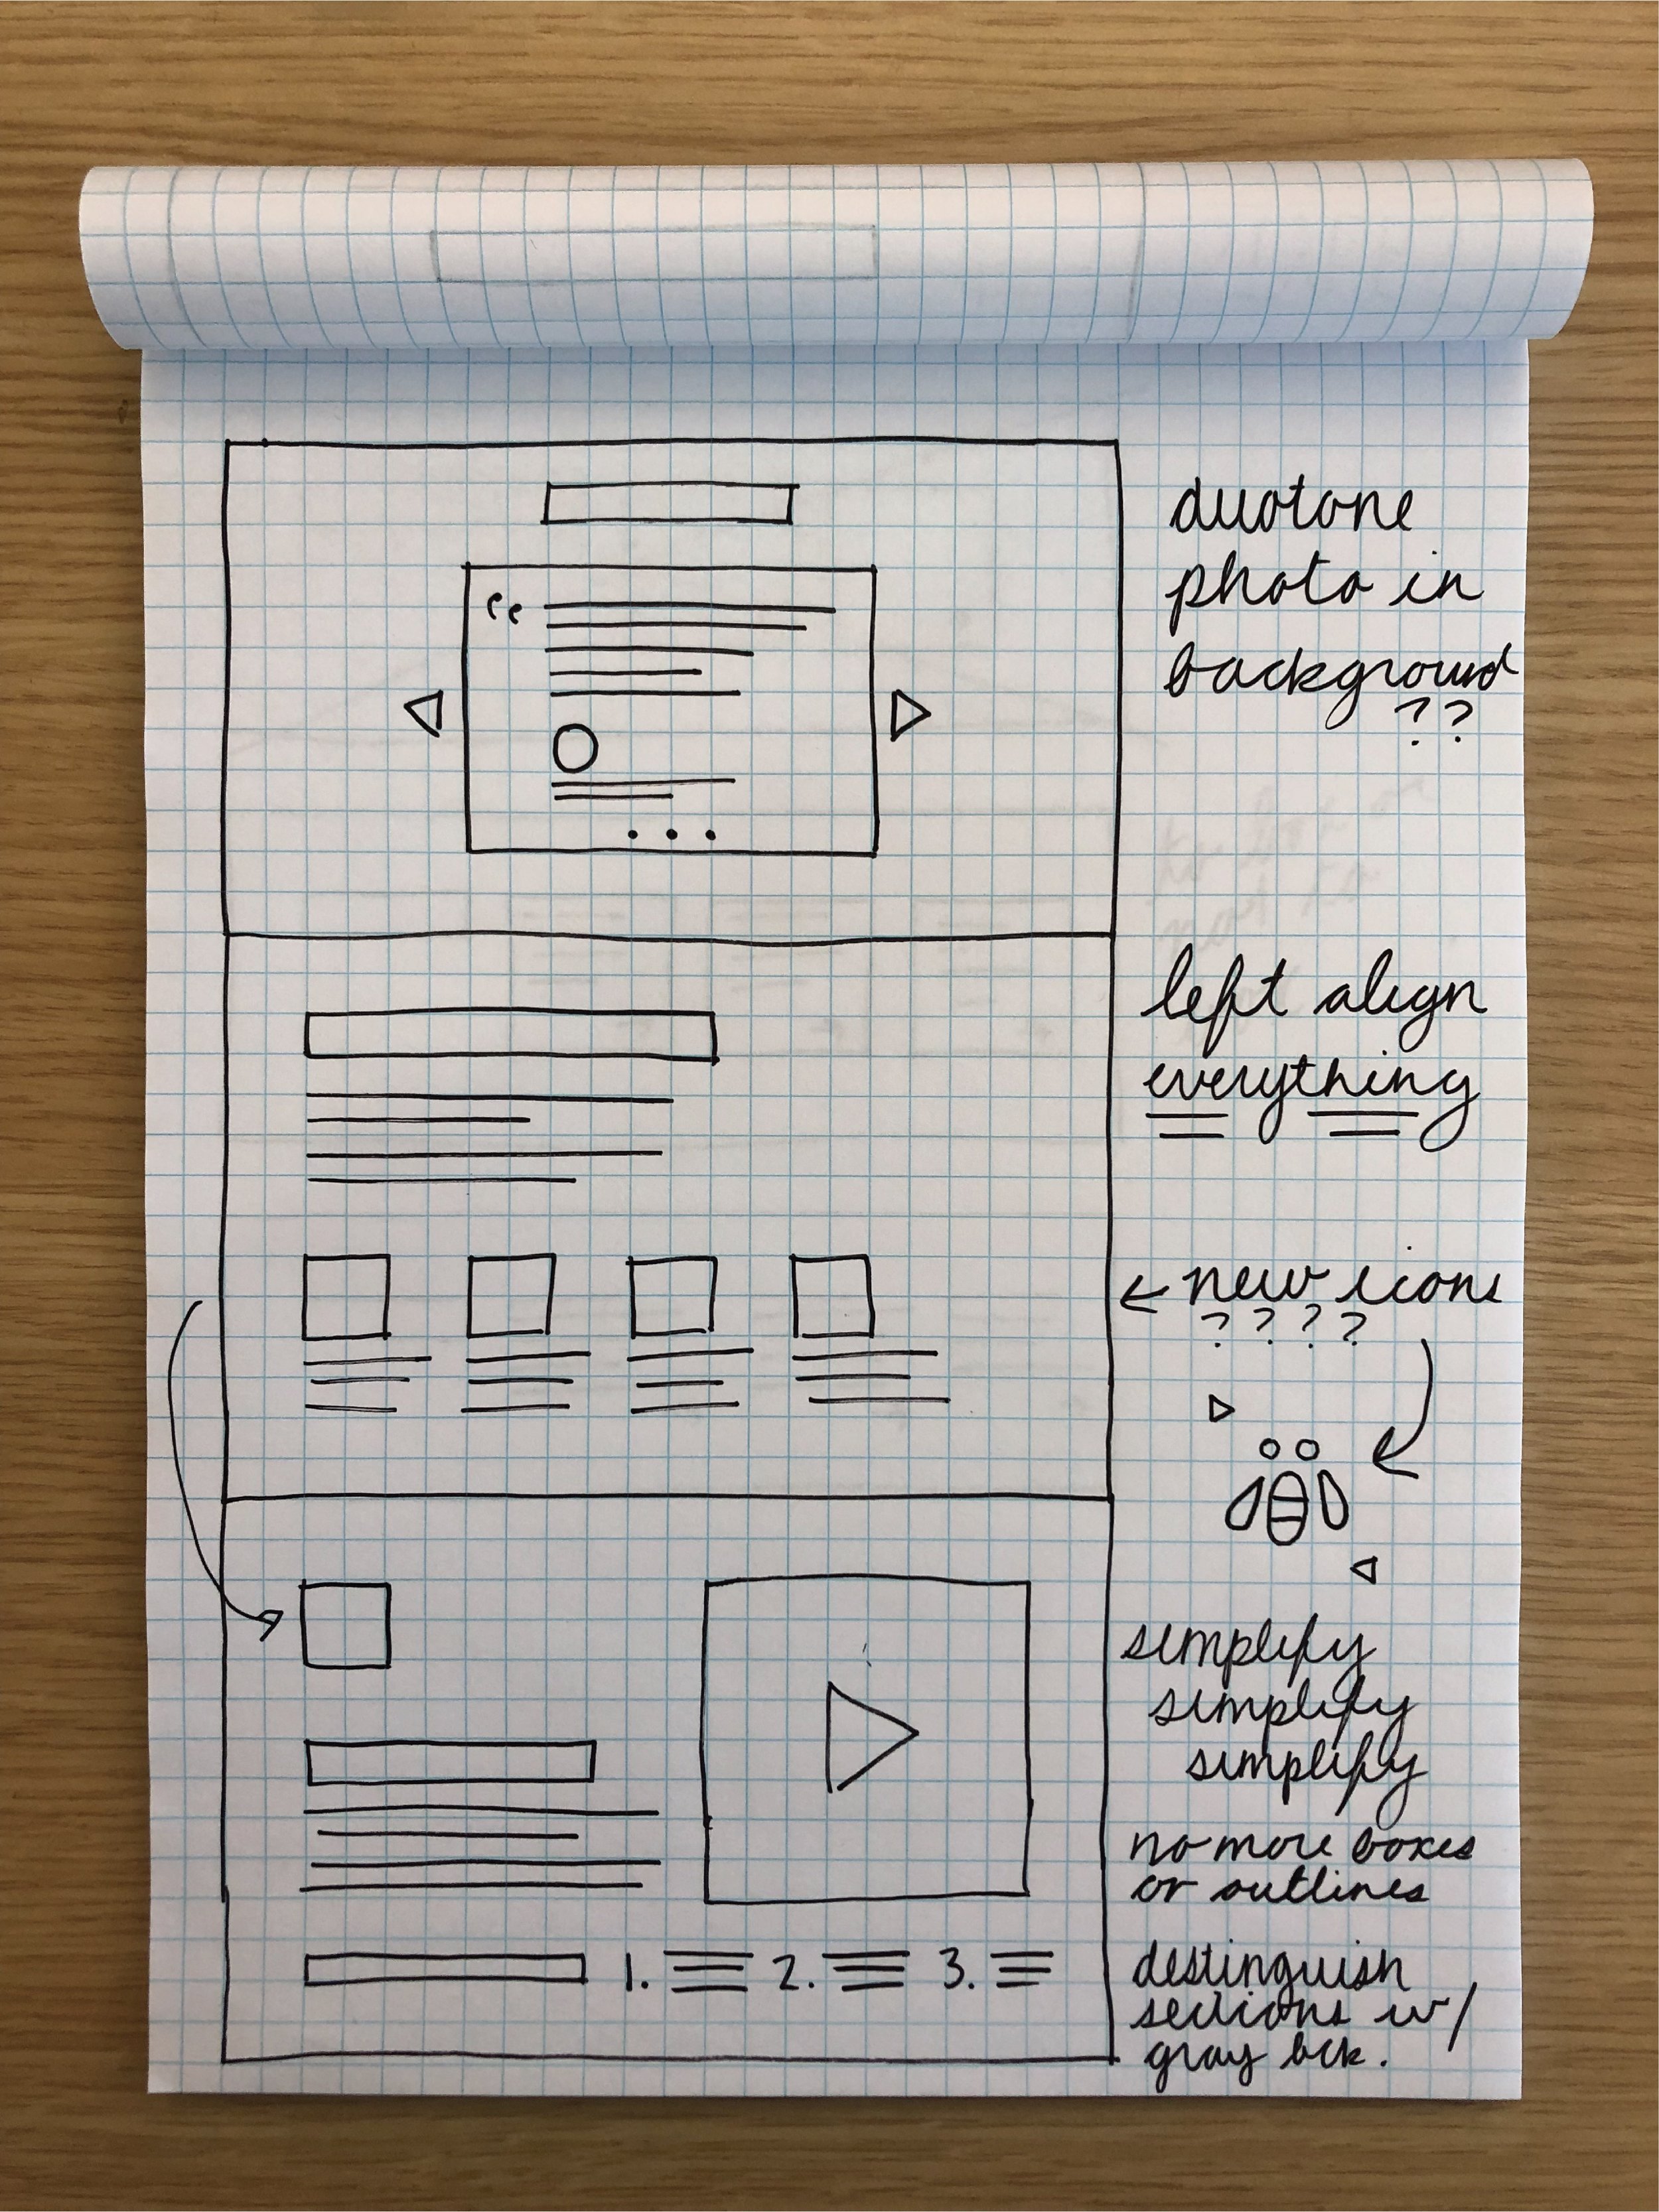 duotone
photo in
background
??
“
left align
everything
← new icons
? ? ? ?
simplify
simplify
simplify
no more boxes
or outlines
1. 2. 3.
destinguish
sections w/
gray bck.